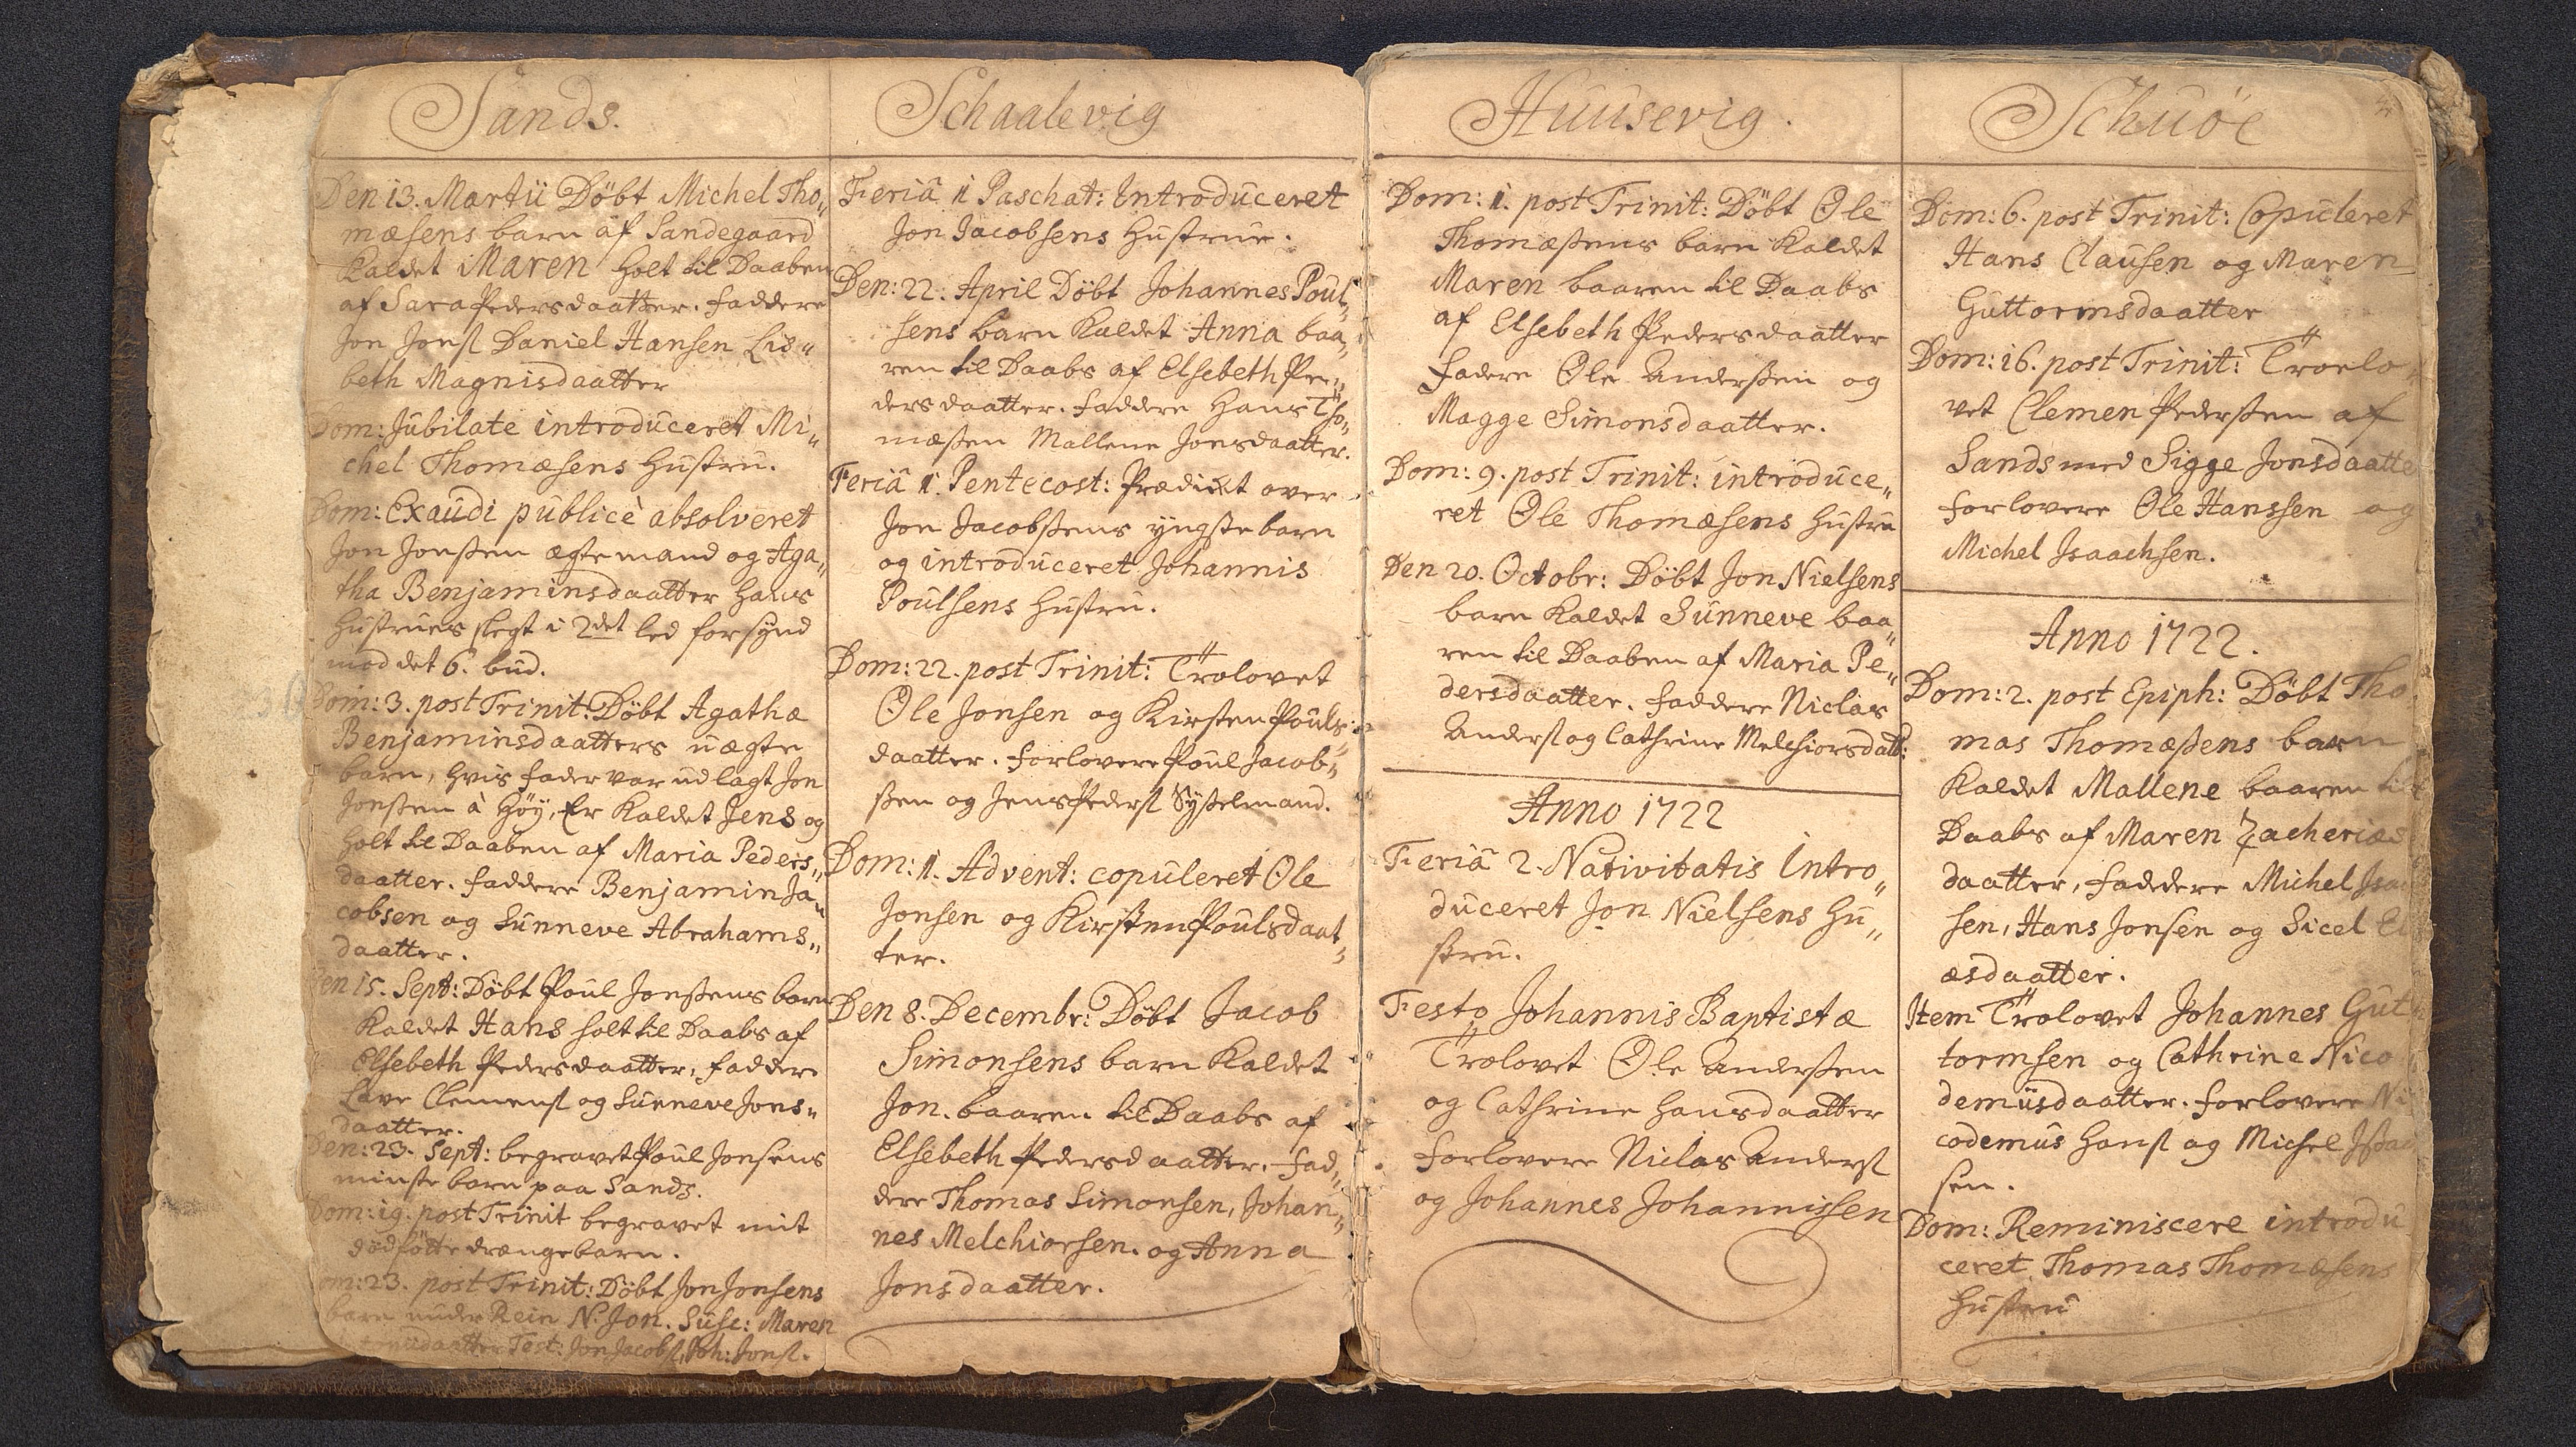 Sands.
Den 13. Martii Döbt Michel Tho„
mæsens barn af Sandegaard
Kaldet Maren holt til Daaben
af Sara Pedersdaatter. faddere
Jon Jonsl Daniel Hansen Lis„
beth Magnisdaatter
Dom: Jubilate introduceret Mi„
chel Thomæsens Hustru.
Dom: Exaudi publicè absolveret
Jon Jonssen ægte mand og Aga„
tha Benjaminsdaatter hans
Hustrues slegt i 2det led forsynd
mod det 6. bud.
Dom: 3. post Trinit: Döbt Agathæ
Benjaminsdaatters uægte
barn, hvis fader var udlagt Jon
Jonssen à Höÿ, Er Kaldet Jens og
holt til Daaben af Maria Peders„
daatter. faddere Benjamin Ja„
cobsen og Sunneve Abrahams„
daatter.
Den 15. Sept: Döbt Poul Jonssens barn
Kaldet Hans holt til Daabs af
Elsebeth Pedersdaatter, faddere
Lave Clemensl og Sunneve Jons„
daatter.
Den: 23. Sept: begravet Poul Jonsens
minste barn paa Sands.
Dom: 19. post Trinit begravet mit
dödfötte drængebarn.
Dom: 23. post Trinit: Döbt Jon Jonsens
barn under Rein N: Jon. Susc: Maren
Test: Jon Jacobsl, Joh: Jonsl.
Schaalevig
Feriâ 1 Paschat: Introduceret
Jon Jacobsens Hustrue.
Den: 22. April Döbt Johannes Poul„
sens barn Kaldet Anna baa„
ren til Daabs af Elsebeth Pe„
dersdaatter. faddere Hans Tho„
mæssen Mallene Jonsdaatter.
Feriâ 1. Pentecost: Prædicket over
Jon Jacobssens yngste barn
og introduceret Johannis
Poulsens Hustru.
Dom: 22. post Trinit: Trolovet
Ole Jonsen og Kirsten Pouls„
daatter. forlovere Poul Jacob„
ssen og Jens Pedersl Sysselmand.
Dom: 1. Advent: copuleret Ole
Jonsen og Kirsten Poulsdaat„
ter.
Den 8. Decembr: Döbt Jacob
Simonsens barn Kaldet
Jon. baaren til Daabs af
Elsebeth Pedersdaatter. fad„
dere Thomas Simonsen, Johan„
nes Melchiorsen. og Anna
Jonsdaatter.
Huusevig.
Dom: 1. post Trinit: Döbt Ole
Thomæssens barn Kaldet
Maren baaren til Daabs
af Elsebeth Pedersdaatter
fadere Ole Anderssen og
Magge Simonsdaatter.
Dom: 9. post Trinit: introduce„
ret Ole Thomæsens Hustru
Den 20. Octobr: Döbt Jon Nielsens
barn Kaldet Sunneve baa„
ren til Daaben af Maria Pe„
dersdaatter. faddere Niclas
Andersl og Cathrine Melchiorsdatt:
Anno 1722
Feriâ 2. Nativitatis Intro„
duceret Jon Nielsens Hu„
stru.
Festo Johannis Baptistæ
Trolovet Ole Anderssen
og Cathrine Hansdaatter
forlovere Niclas Andersl
og Johannes Johannissen
Schuöe
Dom: 6. post Trinit: Copuleret
Hans Clausen og Maren
Guttormsdaatter
Dom: 16. post Trinit: Troelo„
vet Clemen Pederssen af
Sands med Sigge Jonsdaatte
forlovere Ole Hanssen og
Michel Isaachsen.
Anno 1722.
Dom: 2. post Epiph: Döbt Tho
mas Thomæssens barn
Kaldet Mallene baaren til
Daabs af Maren Zacherias
daatter, faddere Michel Isa
sen, Hans Jonsen og Sicel El
æsdaatter.
Item Trolovet Johannes Gut
tormsen og Cathrine Nico
demusdaatter. forlovere Ni
codemus Hansl og Michel Isaa
sen.
Dom: Reminiscere introdu
ceret Thomas Thomæsens
Hustru